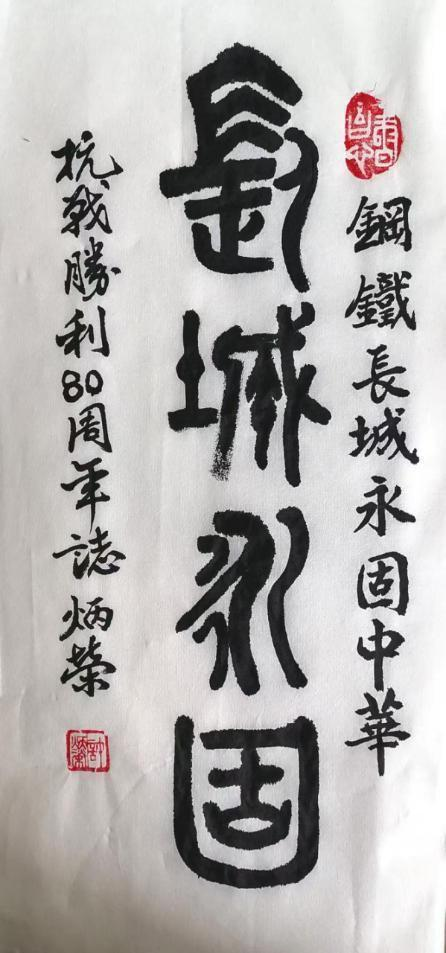 鋼鐵長城永固中華
長城永固
抗戰勝利80周年誌炳榮